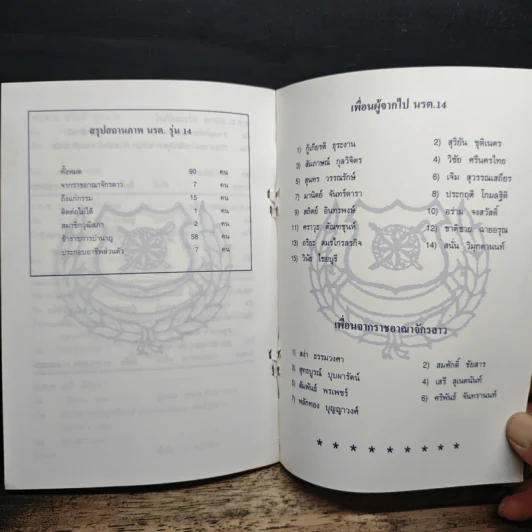 สรุปสถานภาพ นรต. รุ่น 14
ทั้งหมด 90 คน
จากราชอาณาจักรลาว 7 คน
ถึงแก่กรรม 15 คน
ติดต่อไม่ได้ 1 คน
สมาชิกวุฒิสภา 2 คน
ข้าราชการบำนาญ 58 คน
ประกอบอาชีพส่วนตัว 7 คน
เพื่อนผู้จากไป นรต.14
1) กู้เกียรติ ธุระงาน 2) สุริยัน ชุติเนตร
3) สัมภาษณ์ กุลวิจิตร 4) วิชัย ศรีนครไทย
5) สุนทร วรรณรักษ์ 6) เจิม สุวรรณเสถียร
7) มานิตย์ จันทร์ดารา 8) ประกฤติ โกมลฐิติ
9) สถิตย์ อินทรพงษ์ 10) อร่าม จงสวัสดิ์
11) คราวุธ ตัณฑชุนห์ 12) ชาติชวย ฉายอรุณ
13) อริยะ สมรโภรลรกิจ 14) สนั่น วิมุกตานนท์
15) วินัย ไชยบุรี
เพื่อนจากราชอาณาจักรลาว
1) สง่า ธรรมวงศา 2) สมศักดิ์ ชัยสาร
3) สุทธบูรณ์ บุบผารัตน์ 4) เสรี สุเนตนันท์
5) สัมพันธ์ พรเพชร์ 6) ศรีพันธ์ จันทรานนท์
7) หลักทอง บุญญาวงศ์
* * * * * * * * *